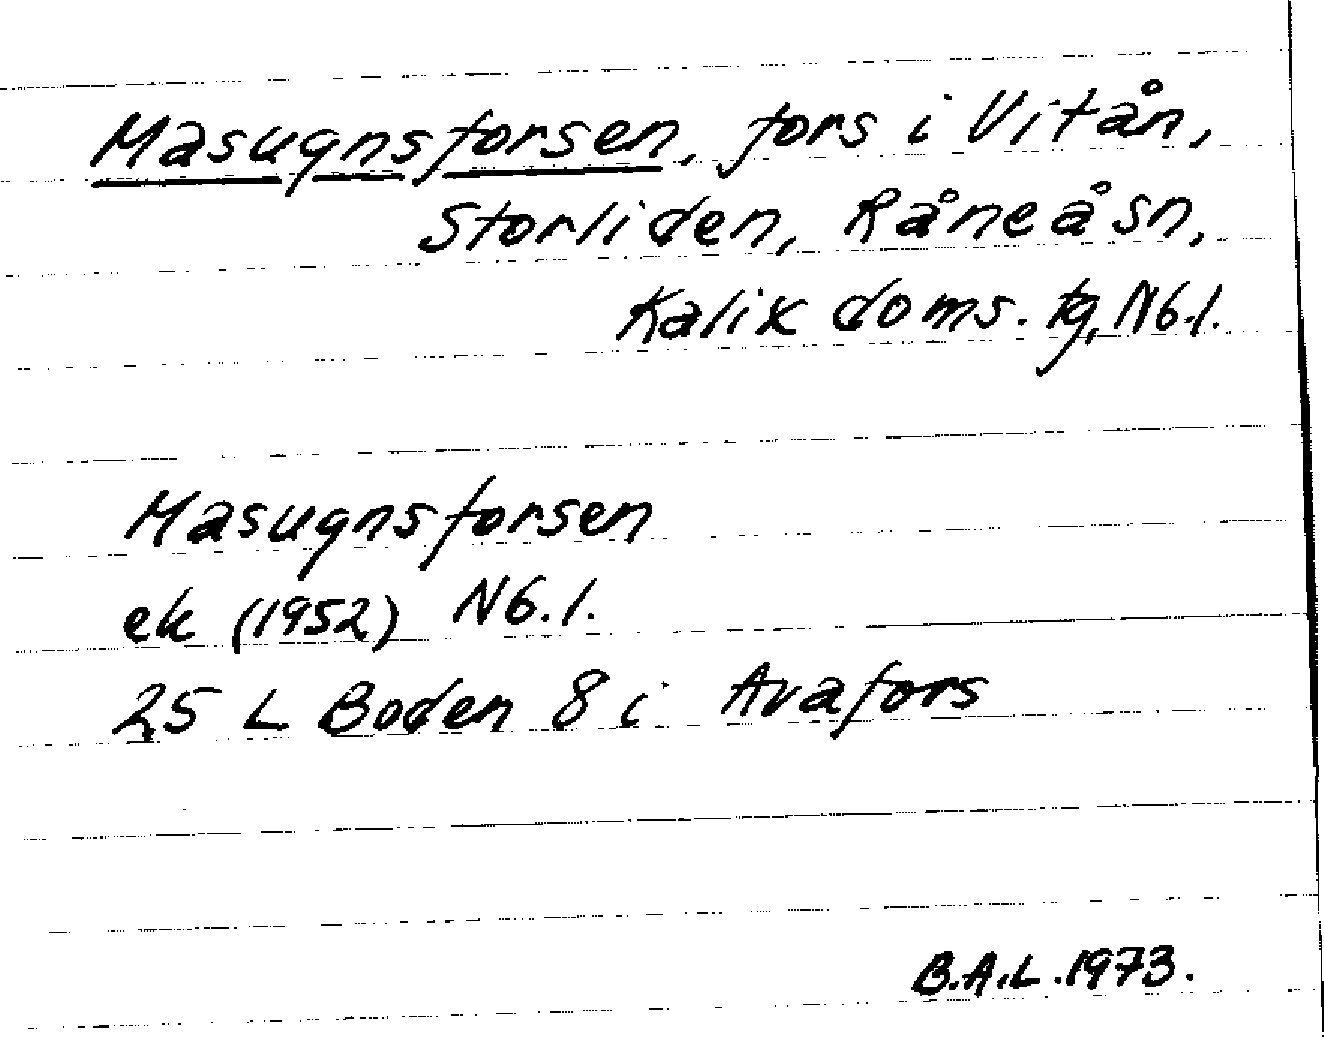 Masugnsforsen, fors i Vitån,
Storliden, Råneå sn,
Kalix doms. tg, Nb.l.
Masugnsforsen
ek (1952) Nb.l.
25 L Boden 8 i Avafors
B.A.L. 1973.